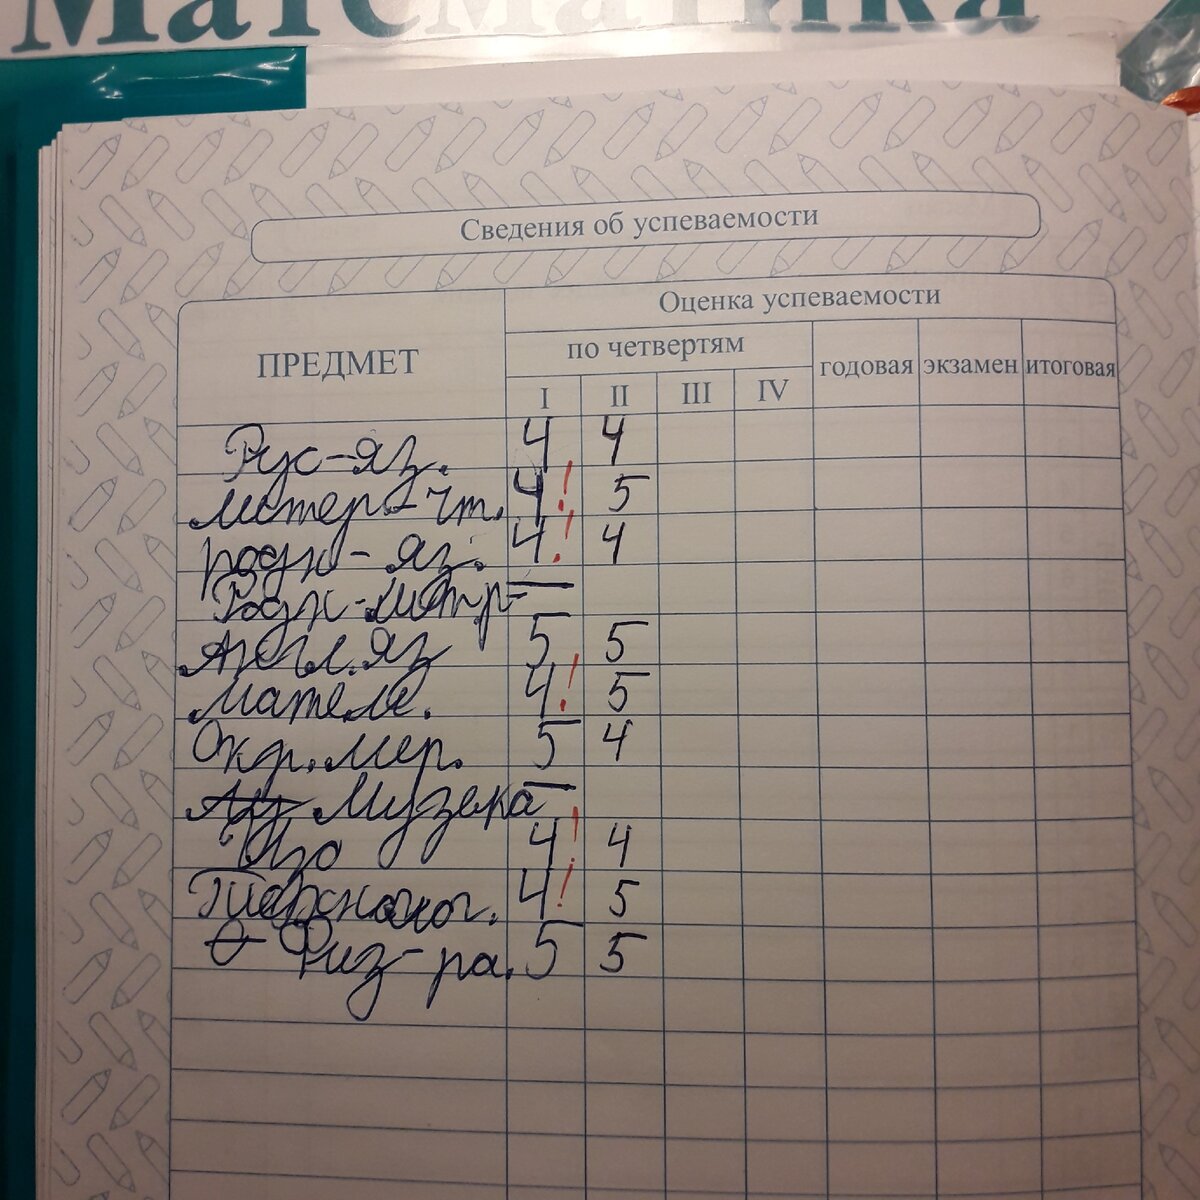 Математика
Сведения об успеваемости
ПРЕДМЕТ
Оценка успеваемости
по четвертям
годовая экзамен итоговая
I II III IV
Рус-яз. 4 4
литер-чт. 4! 5
родн-яз. 4! 4
Родн-литр- —
Англ.яз 5 5
матем. 4! 5
Окр.мир. 5 4
Музыка —
Изо 4! 4
Технолог. 4! 5
Физ-ра. 5 5